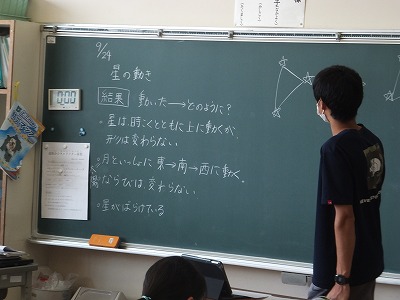 9/24
星の動き
結果 動いた→どのように?
・星は、時こくとともに上に動くが、
形は変わらない
○月といっしょに東→南→西に動く。
太陽
○ならびは、変わらない
○星がばらけている
000